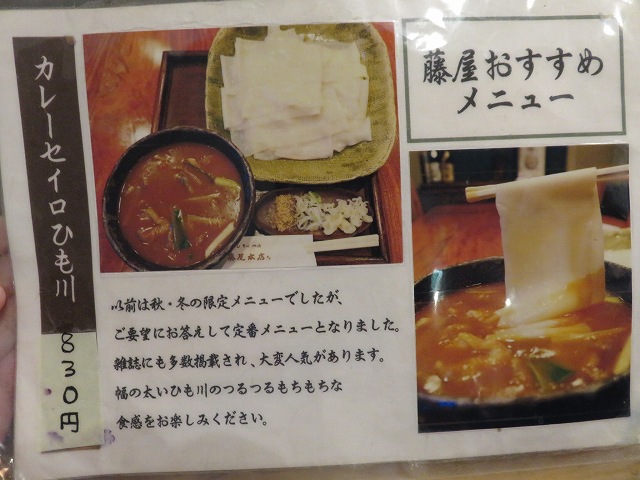 藤屋おすすめ
メニュー
カレーセイロひも川
830円
以前は秋・冬の限定メニューでしたが、
ご要望にお答えして定番メニューとなりました。
雑誌にも多数掲載され、大変人気があります。
幅の太いひも川のつるつるもちもちな
食感をお楽しみください。